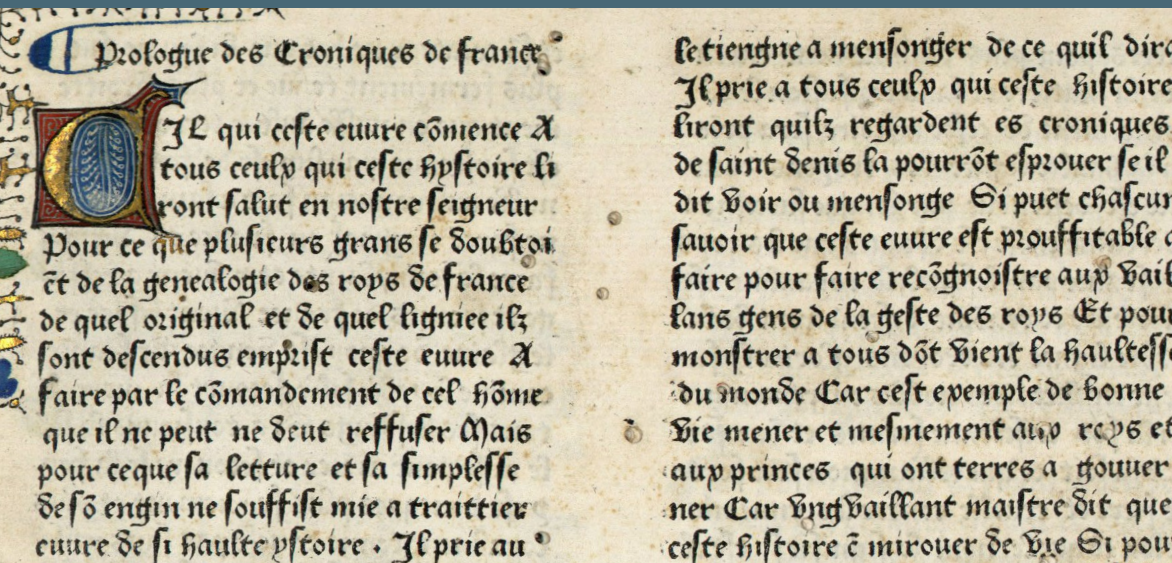 Prologue des Croniques de france
CIL qui ceste euure cõmence A
tous ceulx qui ceste hystoire li
ront salut en nostre seigneur
Pour ce que plusieurs grans se doubtoi
ẽt de la genealogie des roys de france
de quel original et de quel ligniee ilz
sont descendus emprist ceste euure A
faire par le cõmandement de cel hõme
que il ne peut ne deut reffuser Mais
pour ceque sa letture et sa simplesse
de sõ engin ne souffist mie a traittier
euure de si haulte ystoire . Il prie au
le tiengne a mensonger de ce quil dira
Il prie a tous ceulx qui ceste histoire
liront quilz regardent es croniques
de saint denis la pourrõt esprouer se il
dit voir ou mensonge Si puet chascun
sauoir que ceste euure est prouffitable a
faire pour faire recõgnoistre aux vail
lans gens de la geste des roys Et pour
monstrer a tous dõt vient la haultesse
du monde Car cest exemple de bonne
vie mener et mesmement aux roys et
aux princes qui ont terres a gouuer
ner Car vng vaillant maistre dit que
ceste histoire ẽ mirouer de vie Si pour